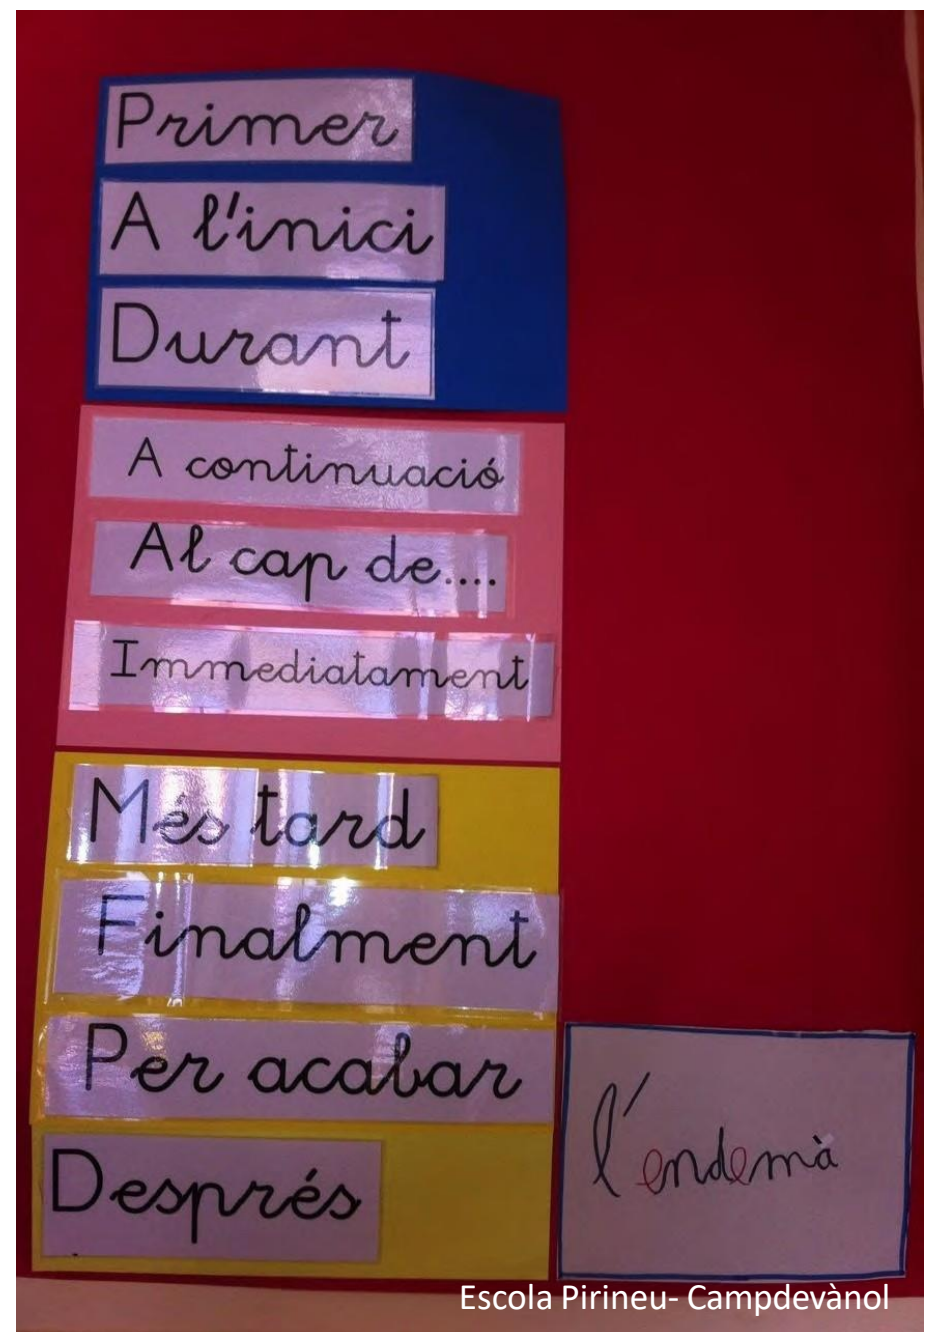 Primer
A l'inici
Durant
A continuació
Al cap de....
Immediatament
Més tard
Finalment
Per acabar
Després
l'endemà
Escola Pirineu- Campdevànol